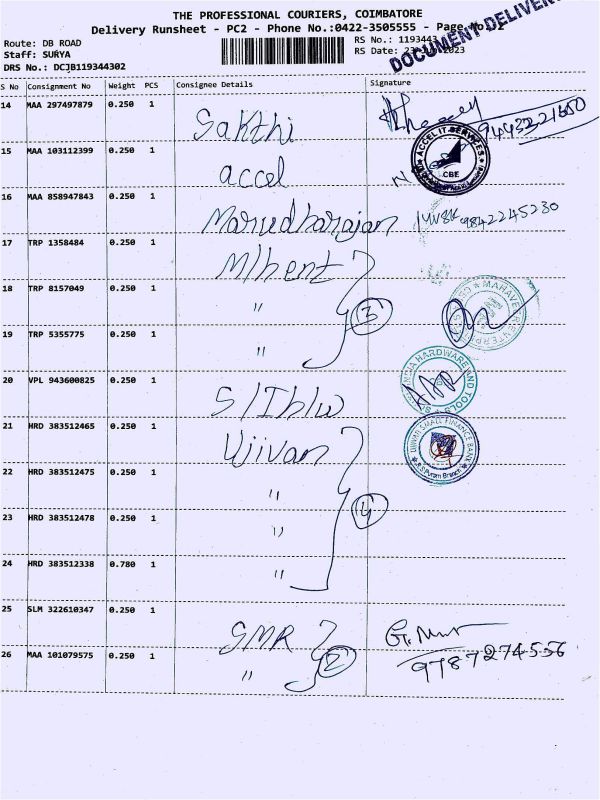 THE PROFESSIONAL COURIERS, COIMBATORE
Delivery Runsheet - PC2 - Phone No.:0422-3505555 - Page No.
DOCUMENT DELIVER
Route: DB ROAD
RS No.: 1193443
Staff: SURYA
RS Date:
DRS No.: DCJB119344302
S No Consignment No Weight PCS Consignee Details Signature
14 MAA 297497879 0.250 1 Sakthi
9443321650
15 MAA 103112399 0.250 1 accel
ACCEL IT SERVICES
CBE
16 MAA 858947843 0.250 1 Marudharajan 9842245230
17 TRP 1358484 0.250 1
18 TRP 8157049 0.250 1 " 3
MAHAVEER ENTERP
19 TRP 5355775 0.250 1 "
INDIA HARDWARE AND TOOLS
20 VPL 943600825 0.250 1
21 HRD 383512465 0.250 1 Ujivan
UJJIVAN SMALL FINANCE BANK
R S Puram Branch
22 HRD 383512475 0.250 1 "
23 HRD 383512478 0.250 1 " 4
24 HRD 383512338 0.780 1 "
25 SLM 322610347 0.250 1 SMR
26 MAA 101079575 0.250 1 " 2
9787274556